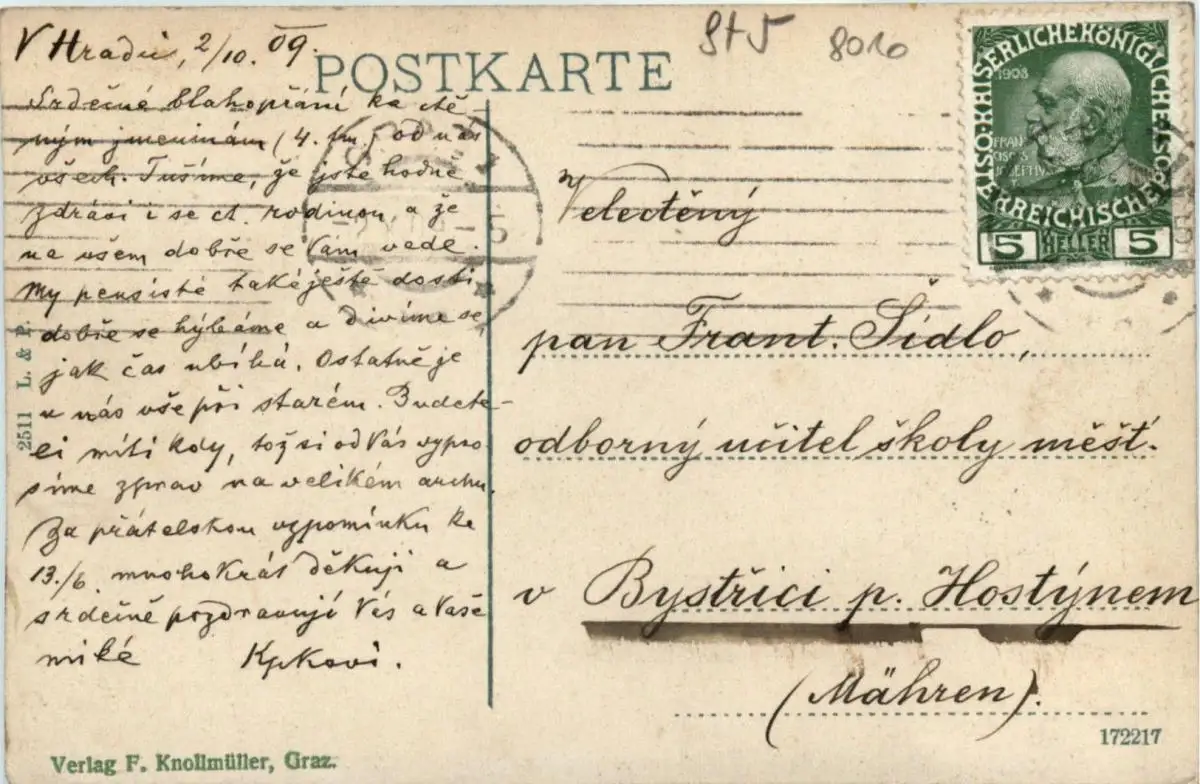 V Hradci, 2/10. 09.
St 5
8010
POSTKARTE
Srdečné blahopřání ke ctě-
ným jmeninám (4. tm.) od nás
všech. Tušíme, že jste hodně
zdrávi i se ct. rodinou, a že
na všem dobře se Vám vede.
My pensisté také ještě dosti
dobře se hýbáme a divíme se,
jak čas ubíhá. Ostatně je
u nás vše při starém. Budete-
li míti kdy, tož si od Vás vypro-
síme zprav na velikém archu.
Za přátelskou vzpomínku ke
13./6 mnohokrát děkuji a
srdečně pozdravují Vás a Vaše
milé
2511 L. & P.
Verlag F. Knollmüller, Graz.
KAISERLICHEKÖNIGLICHE
ÖSTERREICHISCHE
1908
FRAN
CISCVS
IOSEPHVS
5 HELLER 5
Velectěný
pan Frant. Šídlo,
odborný učitel školy měšť.
v Bystřici p. Hostýnem
(Mähren).
172217